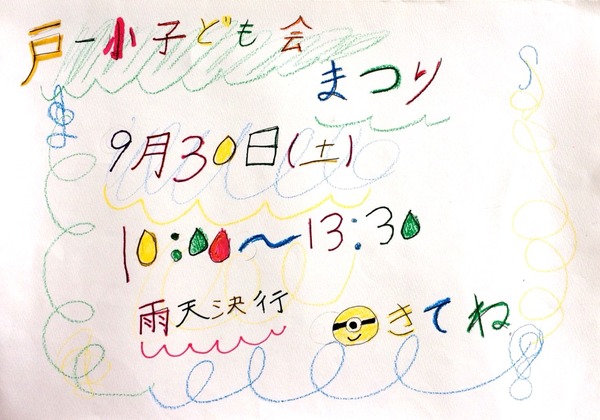 戸一小子ども会
まつり
9月30日(土)
10:00～13:30
雨天決行
きてね